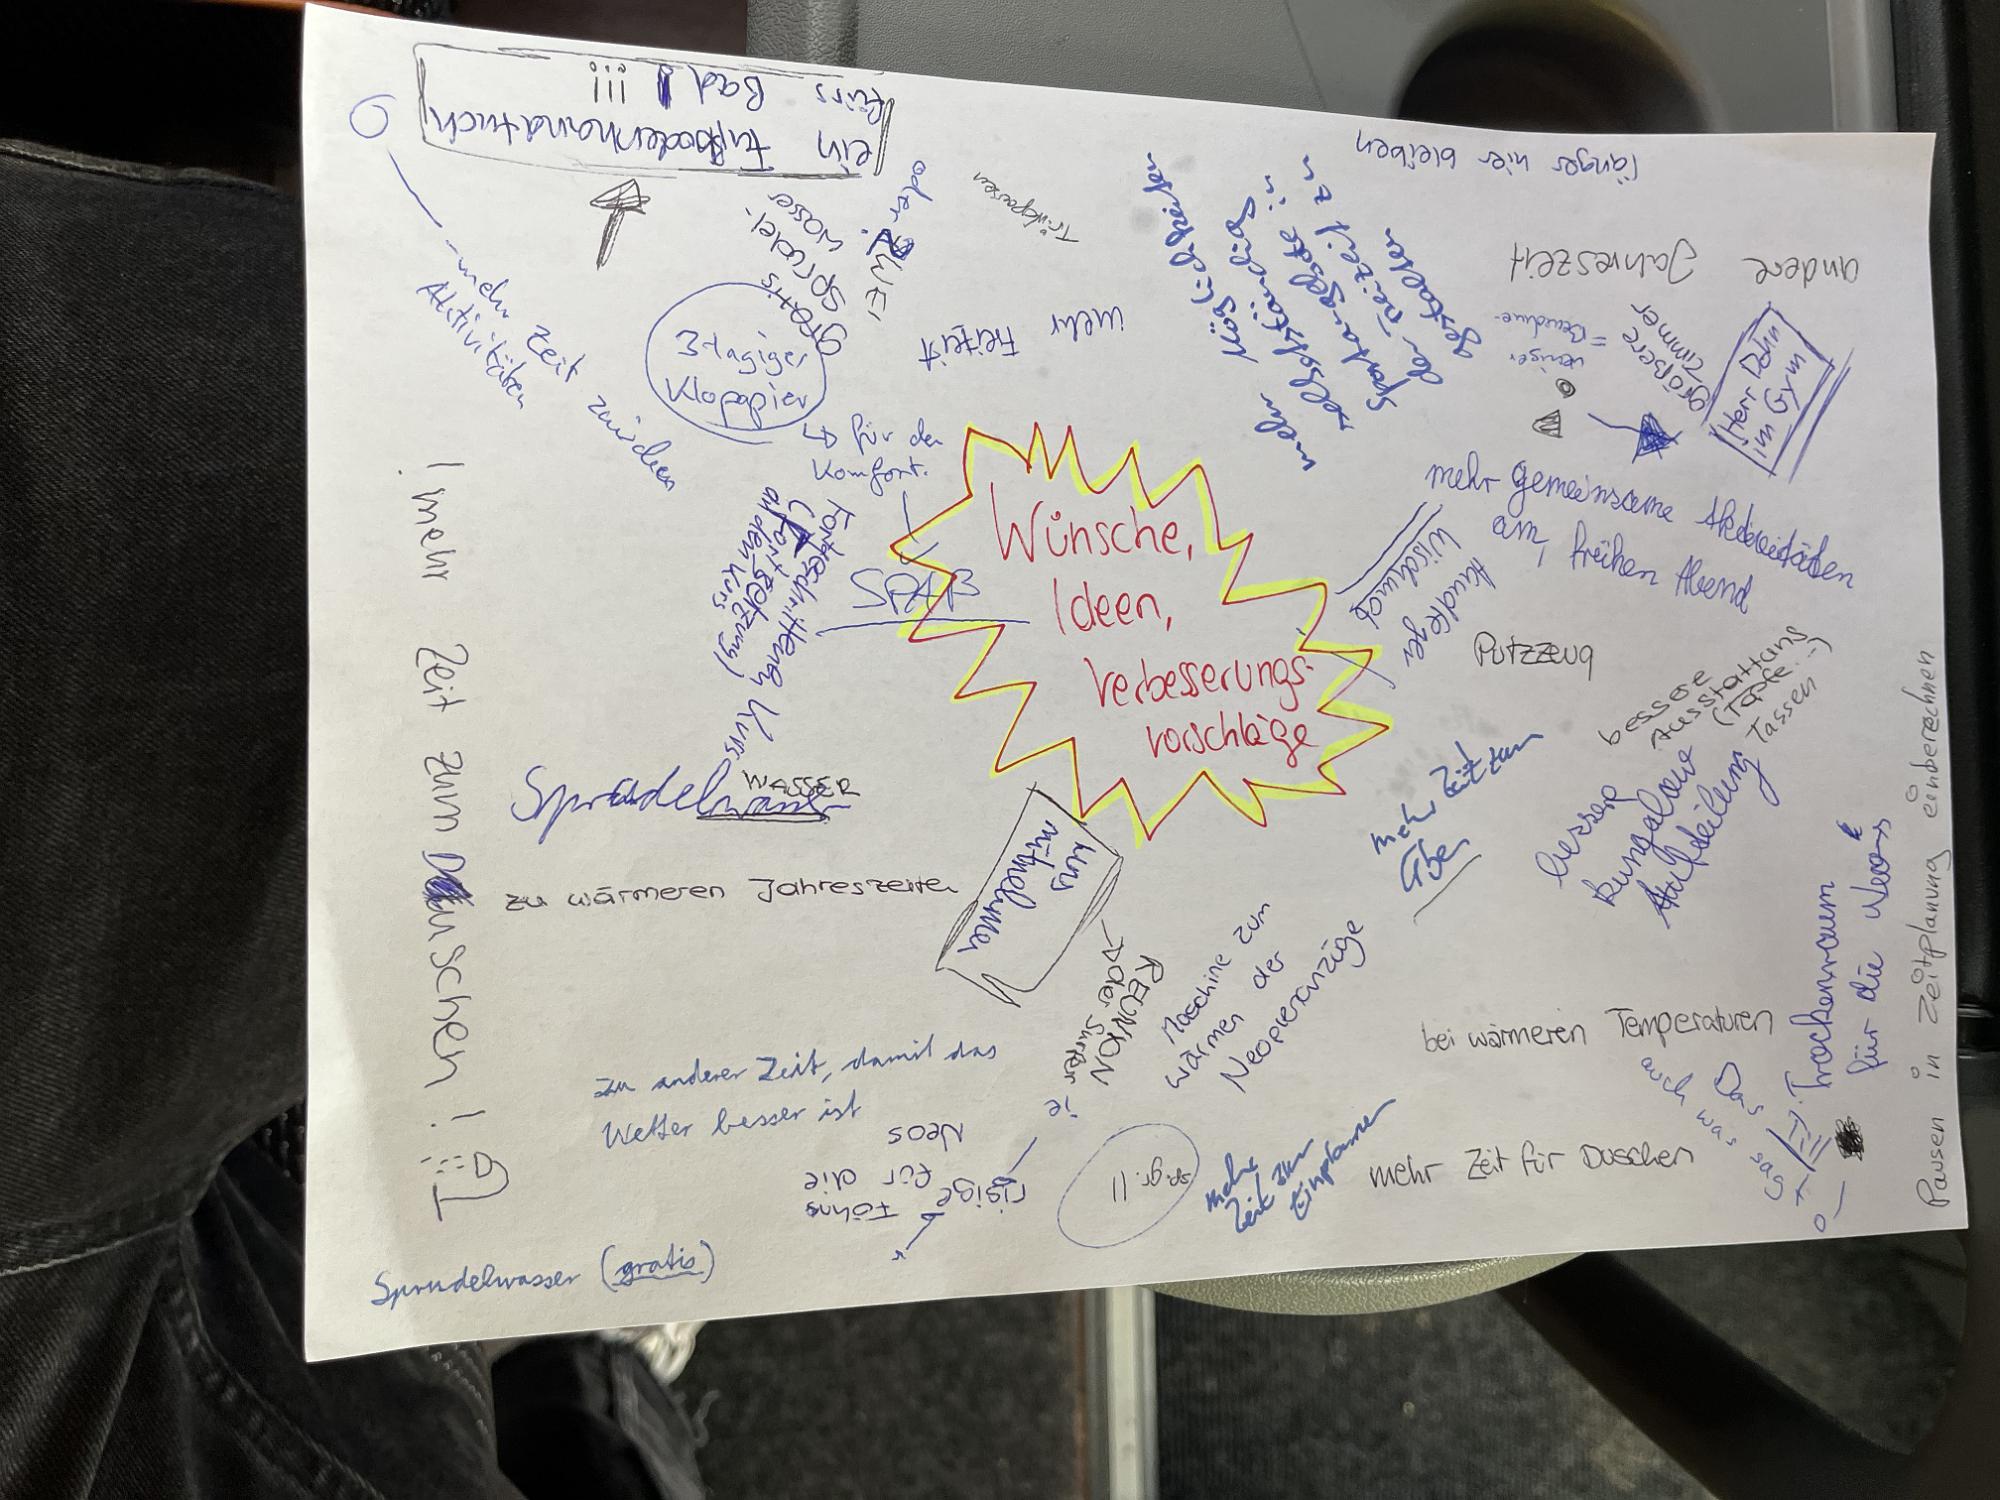 Wünsche,
Ideen,
Verbesserungs-
vorschläge
ein
Fußbodenhandtuch
fürs Bad !!!
oder ZWEI
gratis
Sprudel-
wasser
Trinkpausen
länger hier bleiben
andere
Jahreszeit
mehr
Freizeit
mehr Möglichkeiten
selbstständig
der Freizeit zu
gestalten
weniger
größere
Zimmer
Herr Dohn
im Gym
- mehr Zeit zwischen
Aktivitäten
3-lagiger
Klopapier
→ für den
Komfort.
SPAẞ
Fortgeschrittenen Kurs
(Fortsetzung
an den Kurs)
mehr gemeinsame Aktivitäten
am frühen Abend
Wischmop
Handfeger
Putzzeug
bessere
Ausstattung
(Töpfe...)
Tassen
bessere
Bungalow
Aufteilung
mehr Zeit zum
Üben
Sprudelwasser
WASSER
zu wärmeren Jahreszeiten
uns
mitnehmen
→ REUNION
der Surfer
Maschine zum
wärmen der
Neoprenanzüge
bei wärmeren Temperaturen
Trockenraum
für die Neos
Das
auch was
Pausen in Zeitplanung einberechnen
! mehr Zeit zum Duschen !
zu anderer Zeit, damit das
Wetter besser ist
riesige
Föhns
für die
Neos
mehr
Zeit zum
Einplanen
mehr Zeit für Duschen
Sprudelwasser (gratis)